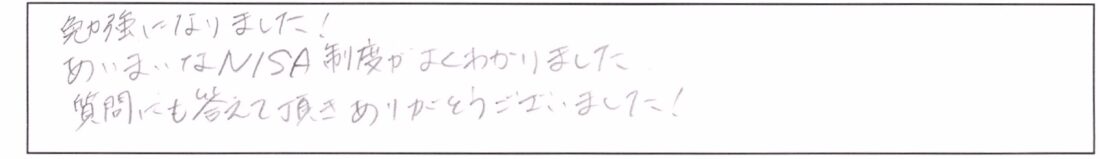 勉強になりました!
あいまいなNISA制度がよくわかりました
質問にも答えて頂きありがとうございました!